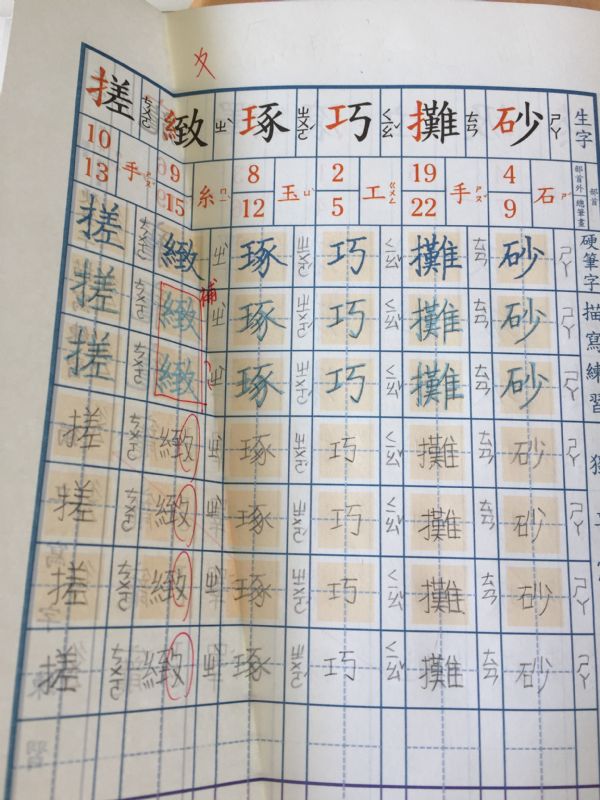 攵
生字
部首
部首外
總筆畫
硬筆字描寫練習
砂 ㄕㄚ
4
9
石 ㄕˊ
砂 ㄕㄚ
砂 ㄕㄚ
砂 ㄕㄚ
砂 ㄕㄚ
砂 ㄕㄚ
砂 ㄕㄚ
砂 ㄕㄚ
攤 ㄊㄢ
19
22
手 ㄕㄡˇ
攤 ㄊㄢ
攤 ㄊㄢ
攤 ㄊㄢ
攤 ㄊㄢ
攤 ㄊㄢ
攤 ㄊㄢ
攤 ㄊㄢ
巧 ㄑㄧㄠˇ
2
5
工 ㄍㄨㄥ
巧 ㄑㄧㄠˇ
巧 ㄑㄧㄠˇ
巧 ㄑㄧㄠˇ
巧 ㄑㄧㄠˇ
巧 ㄑㄧㄠˇ
巧 ㄑㄧㄠˇ
巧 ㄑㄧㄠˇ
琢 ㄓㄨㄛˊ
8
12
玉 ㄩˋ
琢 ㄓㄨㄛˊ
琢 ㄓㄨㄛˊ
琢 ㄓㄨㄛˊ
琢 ㄓㄨㄛˊ
琢 ㄓㄨㄛˊ
琢 ㄓㄨㄛˊ
琢 ㄓㄨㄛˊ
緻 ㄓˋ
9
15
糸 ㄇㄧˋ
緻 ㄓˋ
補
緻 ㄓˋ
緻 ㄓˋ
緻 ㄓˋ
緻 ㄓˋ
緻 ㄓˋ
緻 ㄓˋ
搓 ㄘㄨㄛ
10
13
手 ㄕㄡˇ
搓 ㄘㄨㄛ
搓 ㄘㄨㄛ
搓 ㄘㄨㄛ
搓 ㄘㄨㄛ
搓 ㄘㄨㄛ
搓 ㄘㄨㄛ
搓 ㄘㄨㄛ